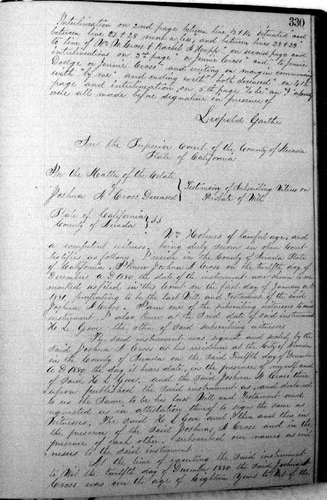 330
Interlineation on 2nd page between line 13 & 14 situated and
between line 25 & 28 and between lines 28 & 29
to line of and Rachel A Knapp on second page and
interlineations on 3rd page or Jennie Cross and to Jennie
Dodge or Jennie Cross and writing on margin commencing
with by me and ending with both declared on 4th
page and interlineation on 5th page to be an
were all made before signature in presence of
Leopolde Garthe
In the Superior Court of the County of Nevada
State of California
In the Matter of the Estate
of
Joshua A Cross Deceased
Testimony of Subscribing Witness on
Probate of Will
State of California
County of Nevada
SS
Wm Holmes of lawful age, and
a competent witness, being duly sworn in open Court
testifies as follows I reside in the County of Nevada State
of California. I knew Joshua A Cross on the twelfth day of
December A.D. 1880 the date of the instrument now shown me
marked as filed in this Court on the first day of January A.D.
1881, purporting to be the last Will and Testament of the said
Joshua A Cross. I am one of the subscribing witnesses to said
instrument. I also knew at the said date of said instrument
H L Gove, the other of said subscribing witnesses
The said instrument was signed and sealed by the
said Joshua A Cross at his residence at the
in the County of Nevada on the said twelfth day of December
A.D. 1880 the day it bears date, in the presence of myself and
of said H L Gove, and the said Joshua A Cross then
upon published the said instrument as, and declared
to us the same to be his last Will and Testament and
requested us in attestation thereof to sign the same as
witnesses. The said H L Gove and I then and there in
the presence of the said Joshua A Cross and in the
presence of each other subscribed our names as wit-
nesses to the said instrument.
At the time of executing the said instrument
to wit the twelfth day of December 1880 the said Joshua A
Cross was over the age of Eighteen years to wit of the